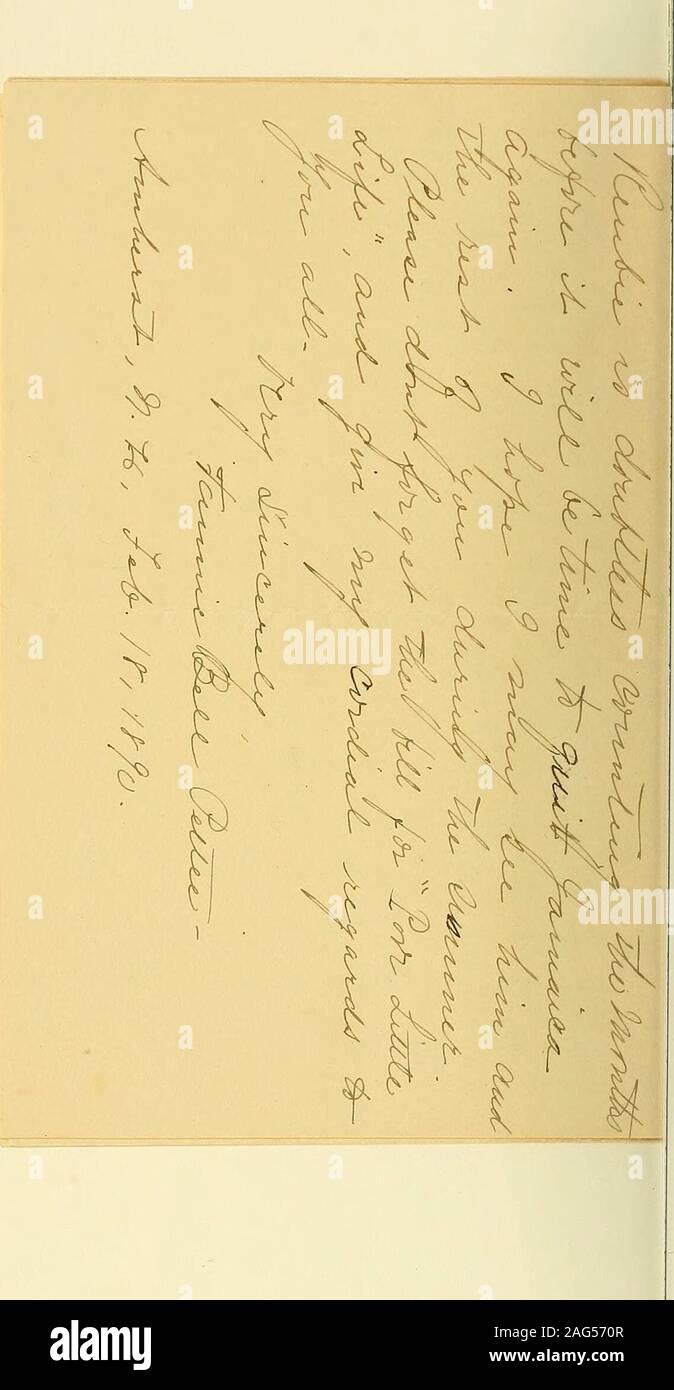 Reubie is doubtless counting the months
before it will be time to quit Jamaica
again. I hope I may see him and
the rest of you during the summer.
Please don't forget the bill for "Poor Little
Life", and give my cordial regards to
you all-
Very Sincerely,
Fannie Bell Pettee-
Amherst, N. H, Feb. 18, 1890.
a alamy
alamy
Image ID: 2AG570R
www.alamy.com